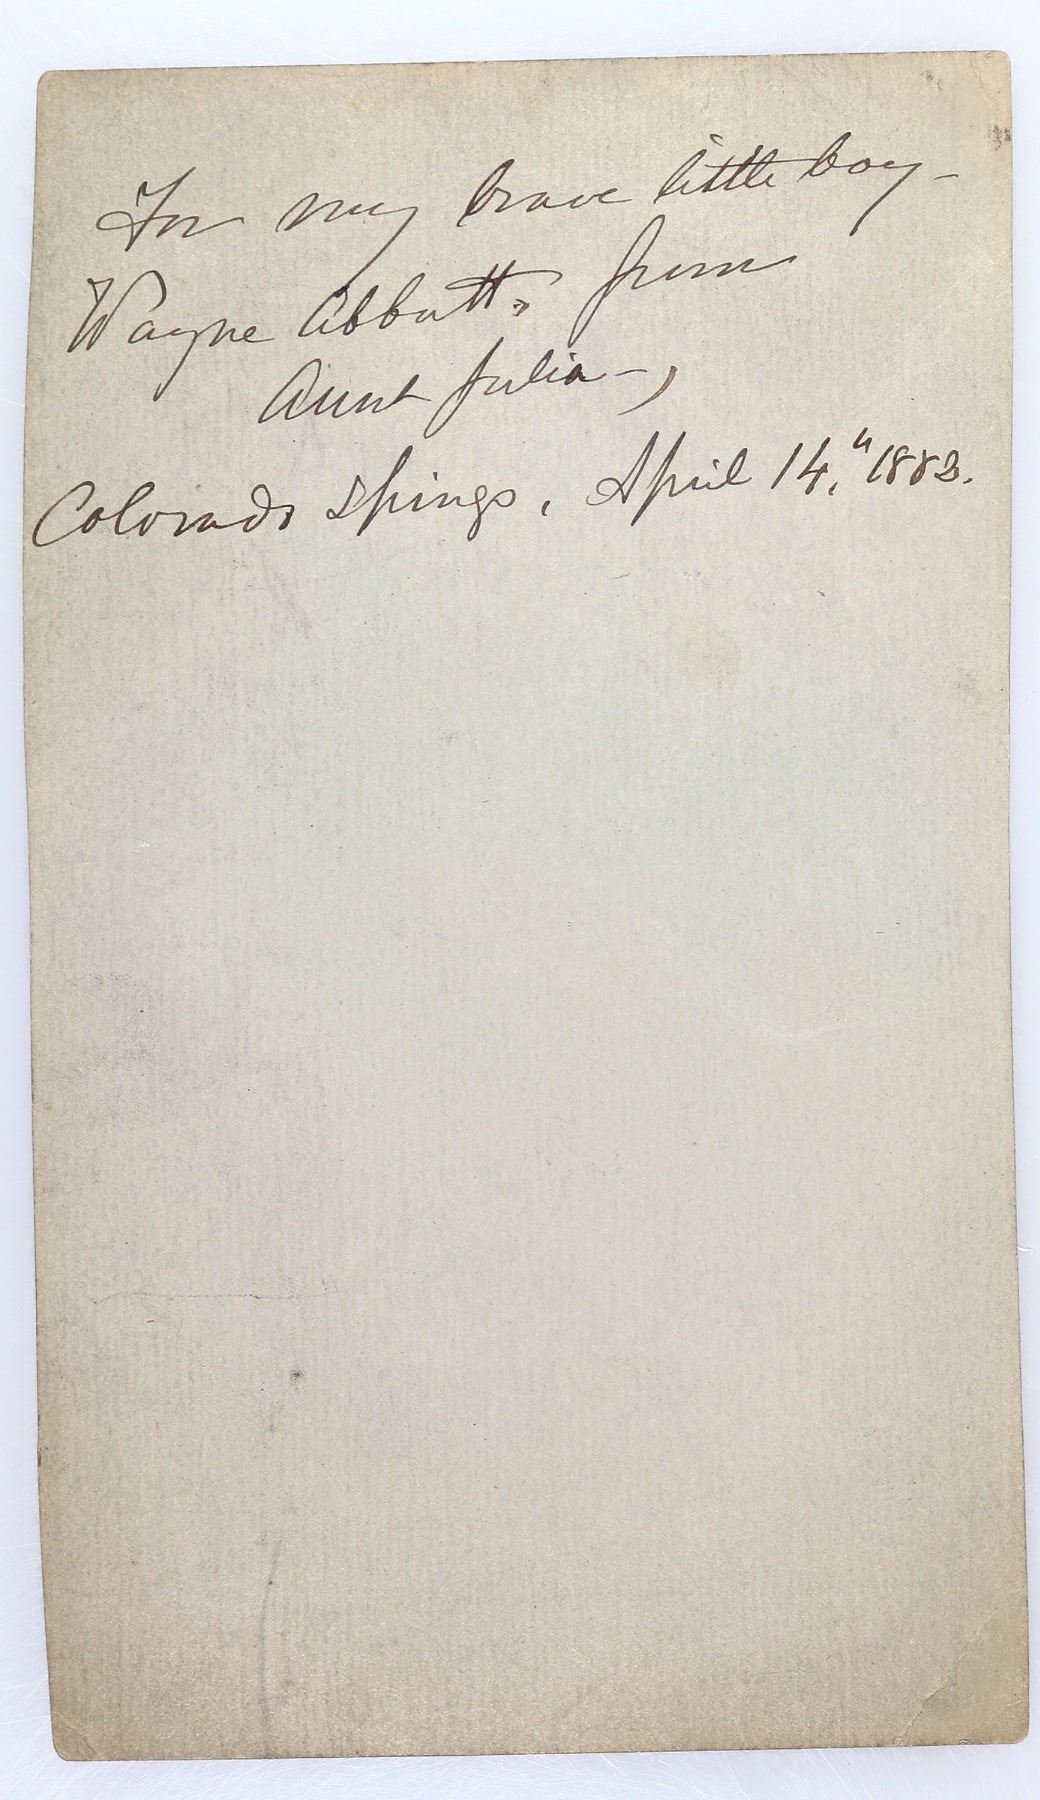 For my brave little boy -
Wayne Abbott, from
Aunt Julia -,
Colorado Springs, April 14,th 1882.